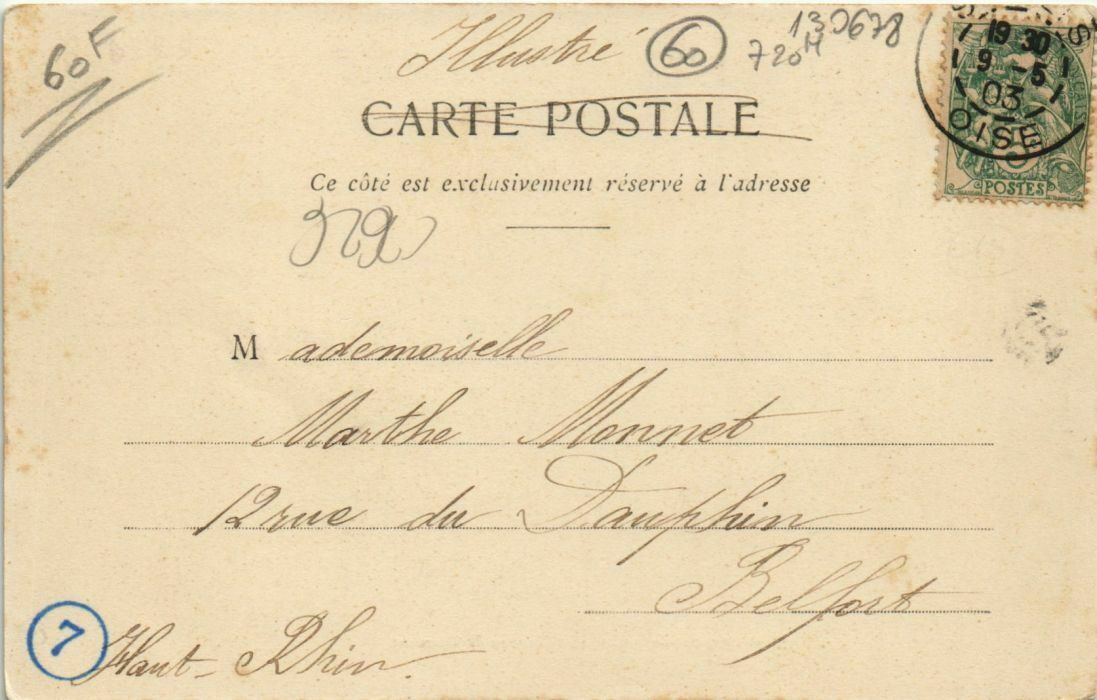 60F
Illustré
60
130678
720M
CARTE POSTALE
Ce côté est exclusivement réservé à l'adresse
19 30
9 -5
03
OISE
POSTES
Mademoiselle
Marthe Monnet
12 rue du Dauphin
Belfort
Haut-Rhin
7